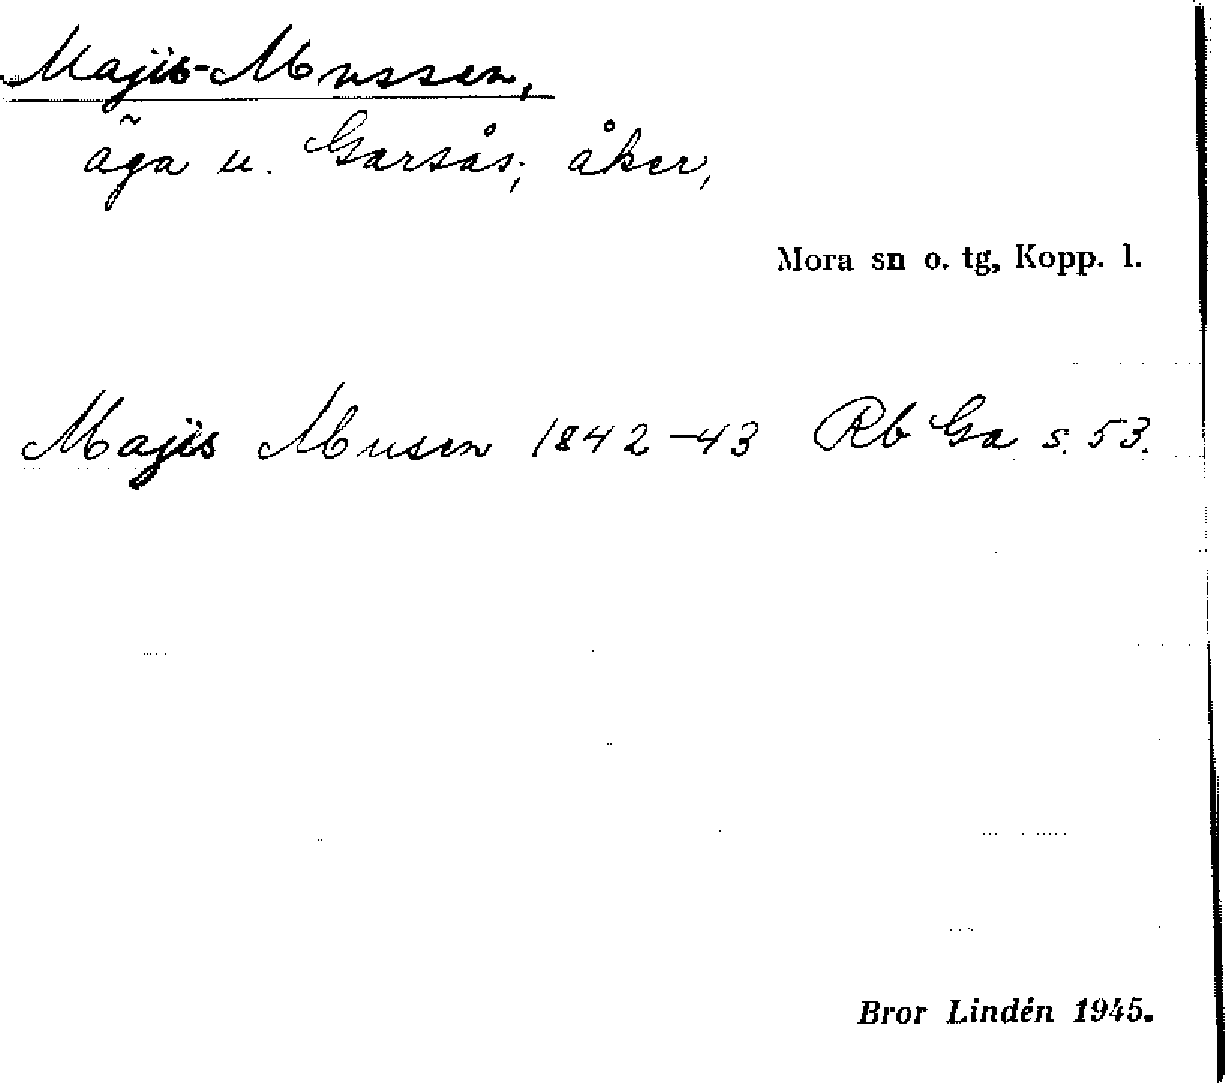 Majis-Mussen,
äga u. Garsås; åker,
Mora sn o. tg, Kopp. l.
Majis Musen 1842-43 Rb Ga s. 53.
Bror Lindén 1945.